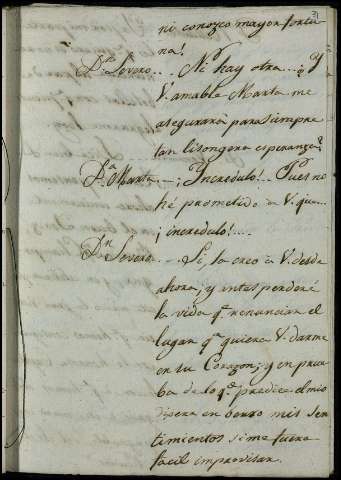 31
ni conozco mayor fortu
na!
Dn. Severo... Ni hay otra...¿ Y
V. amable Marta me
asegurará para siempre
tan lisongera esperanza?
Da. Marta — ¡Incredulo!... Pues no
hé prometido á V. que...
¡incredulo!....
Dn. Severo... Si, la creo á V. desde
ahora; y antes perderé
la vida qe. renunciar el
lugar qe. quiera V. darme
en su Corazon; y en prue
ba de lo qe. predica el mio
en berso mis sen
timientos si me fuera
facil improvisar.